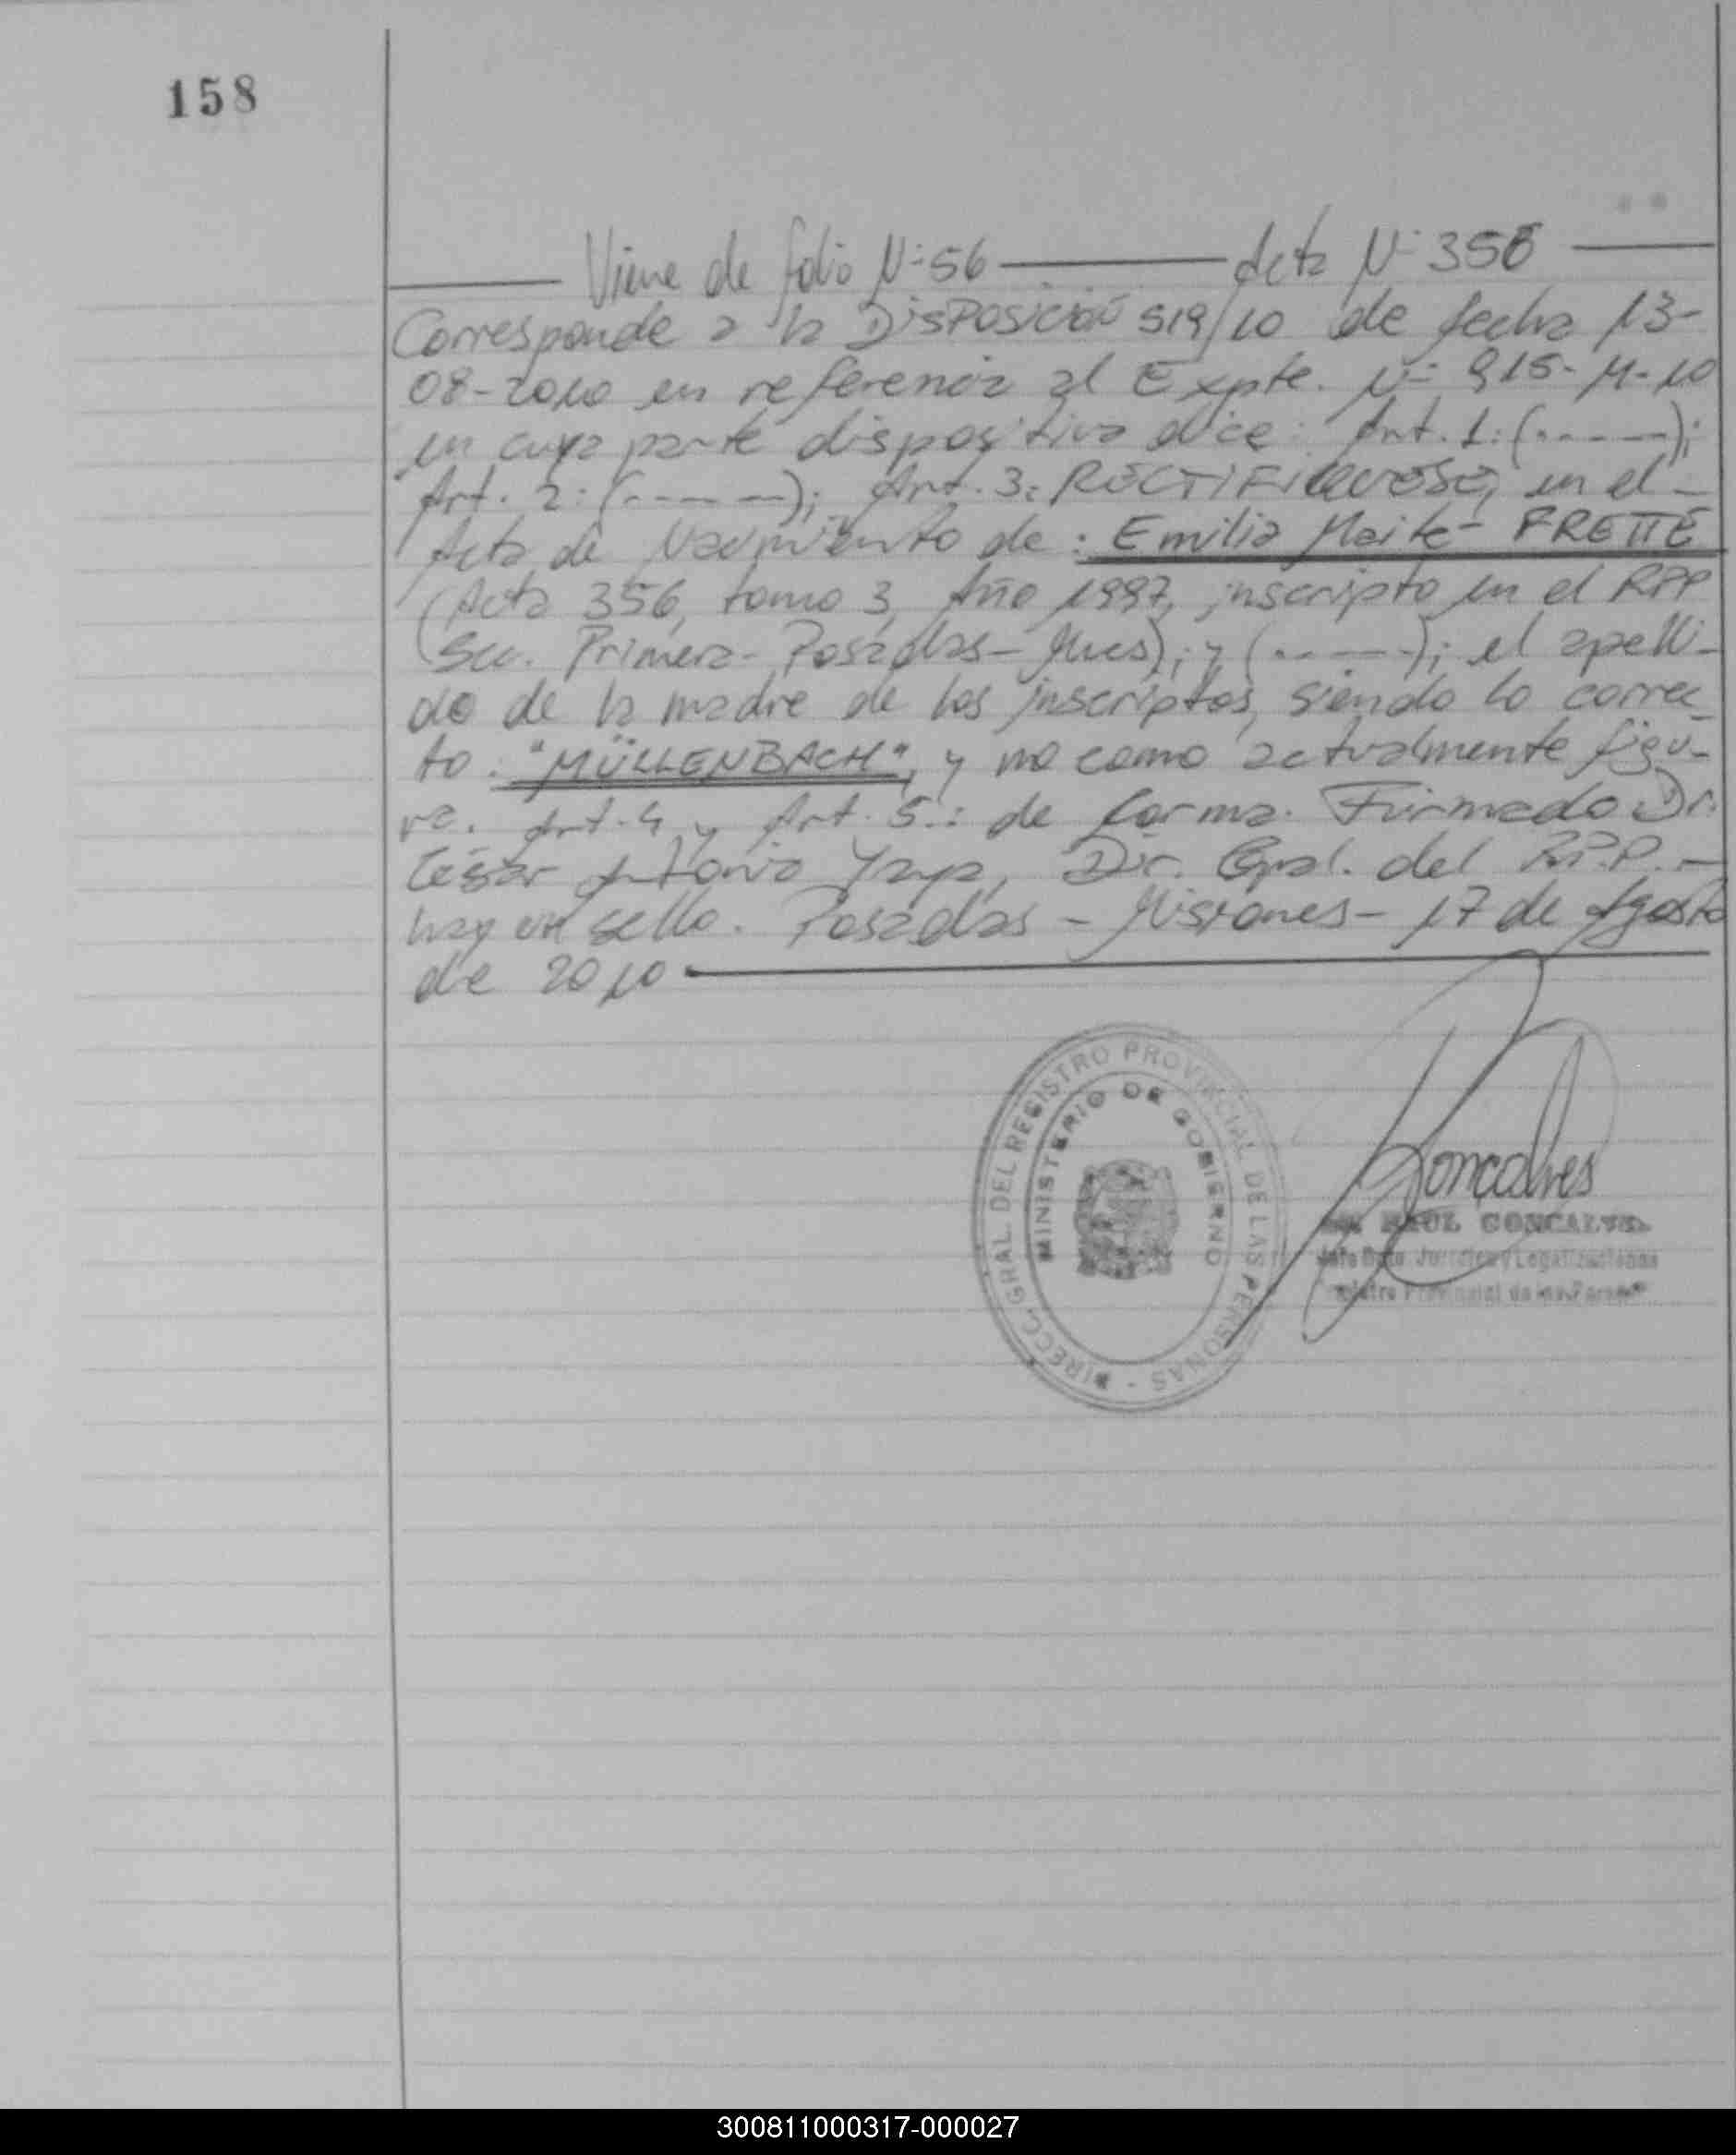 158
Viene de folio N° 56 — Acta N° 356 —
Corresponde a la DISPOSICIÓN 519/10 de fecha 13-
08-2010 en referencia al Expte. N° 915-M-10
en cuya parte dispositiva dice: Art. 1: (-----);
Art. 2: (-----); Art. 3: RECTIFIQUESE, en el
Acta de Nacimiento de: Emilia Maite- FRETTE
(Acta 356, tomo 3, Año 1997, inscripto en el RPP
Sec. Primera- Posadas- Mnes); y (-----); el apelli-
do de la madre de los inscriptos, siendo lo correc-
to: "MÜLLENBACH", y no como actualmente figu-
ra. Art. 4 y Art. 5: de forma. Firmado Dr.
César Antonio Yaya, Dir. Gral. del R.P.P. —
hay un sello. Posadas - Misiones - 17 de Agosto
de 2010
DIRECC. GRAL. DEL REGISTRO PROVINCIAL DE LAS PERSONAS -
MINISTERIO DE GOBIERNO
Goncalves
RAUL GONCALVES
Jefe Dpto. Jurídico y Legalizaciones
Registro Provincial de las Personas
300811000317-000027